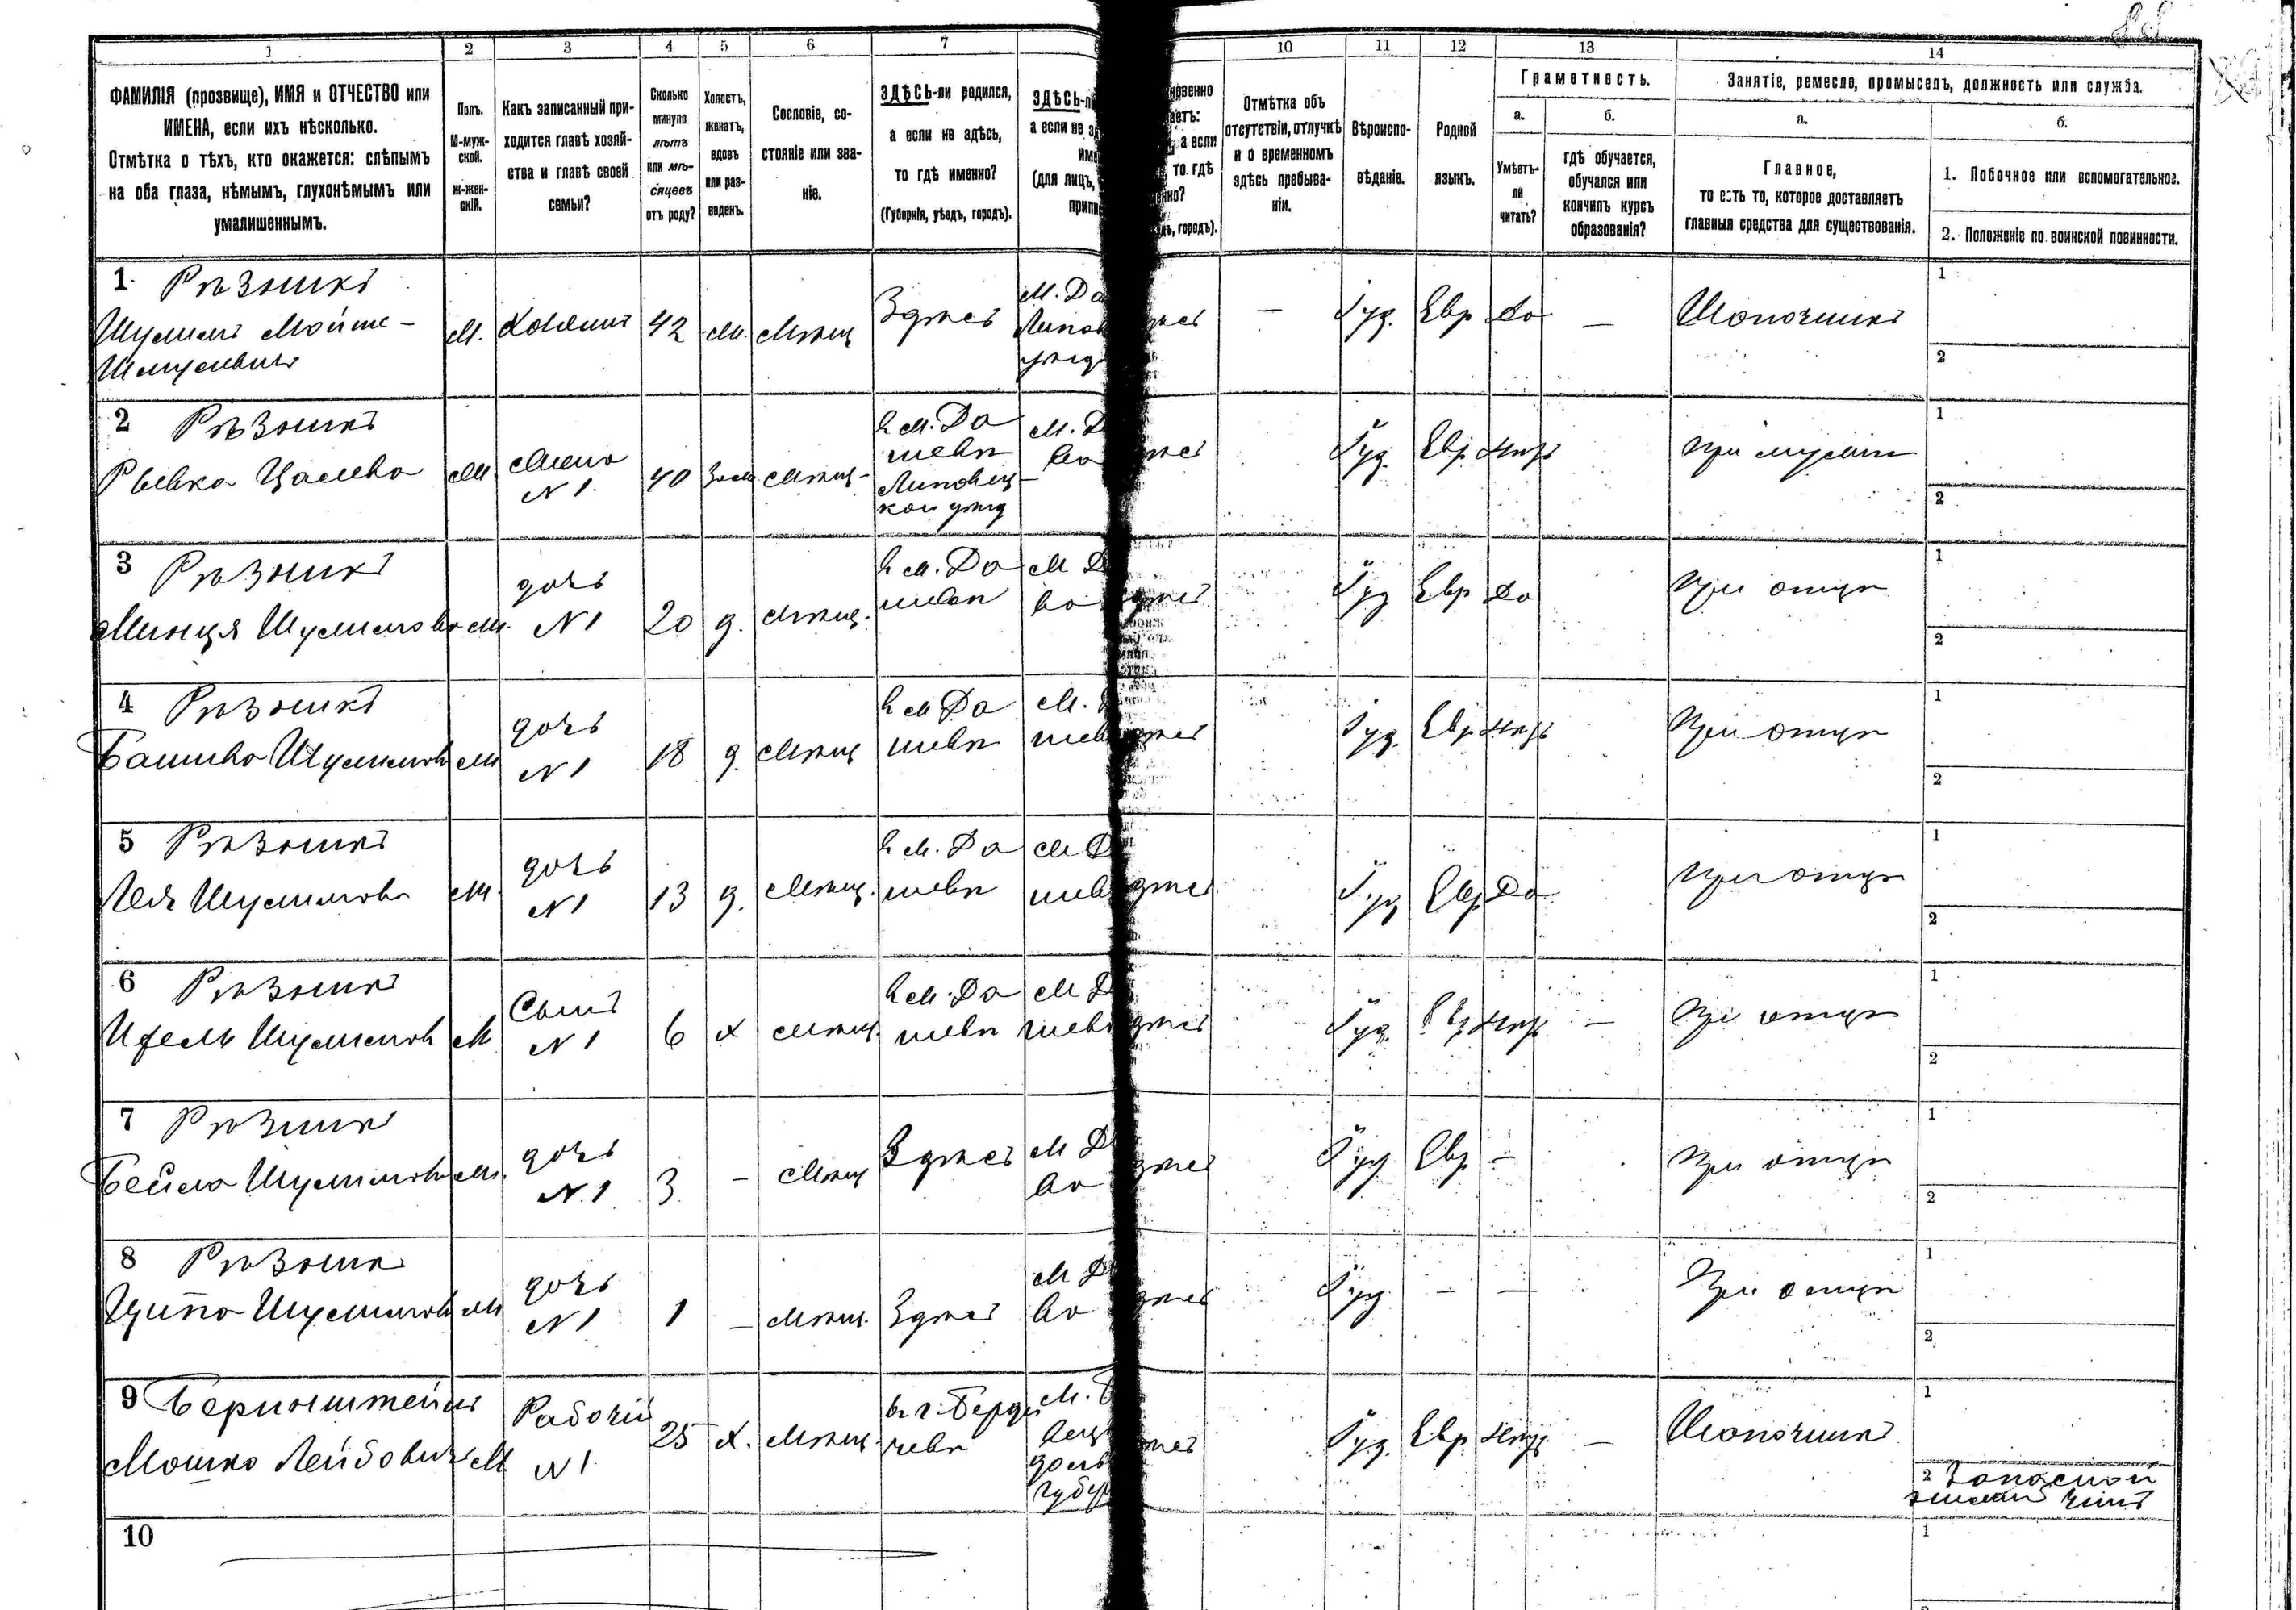 1
2
3
4
5
6
7
10
11
12
13
14
ФАМИЛІЯ (прозвище), ИМЯ и ОТЧЕСТВО или
ИМЕНА, если ихъ нѣсколько.
Отмѣтка о тѣхъ, кто окажется: слѣпымъ
на оба глаза, нѣмымъ, глухонѣмымъ или
умалишеннымъ.
Полъ.
М-муж-
ской.
ж-жен-
скій.
Какъ записанный при-
ходится главѣ хозяй-
ства и главѣ своей
семьи?
Сколько
минуло
лѣтъ
или мѣ-
сяцевъ
отъ роду?
Холостъ,
женатъ,
вдовъ
или раз-
веденъ.
Сословіе, со-
стояніе или зва-
ніе.
ЗДѢСЬ-ли родился,
а если не здѣсь,
то гдѣ именно?
(Губернія, уѣздъ, городъ).
ЗДѢСЬ-л
а если не зд
им
(для лицъ,
припи
а если
то гдѣ
городъ).
Отмѣтка объ
отсутствіи, отлучкѣ
и о временномъ
здѣсь пребыва-
ніи.
Вѣроиспо-
вѣданіе.
Родной
языкъ.
Грамотность.
а.
Умѣетъ-
ли
читать?
б.
гдѣ обучается,
обучался или
кончилъ курсъ
образованія?
Занятіе, ремесло, промыселъ, должность или служба.
а.
Главное,
то есть то, которое доставляетъ
главныя средства для существованія.
б.
1. Побочное или вспомогательное.
2. Положеніе по воинской повинности.
1 Рѣзникъ
Шулимъ Мойше-
Шмулевичъ
М. Хозяинъ 42 Мѣщ Здѣсь М. Да
Іуд. Евр Да — Шапочникъ
1
2
2 Рѣзникъ
Рывка Цалева
Жена
N 1. 40 Зам Мѣщ-
в м. Да
шевѣ
Липовец-
кой уѣзд
М. Д
Іуд. Евр нѣтъ при мужѣ
1
2
3 Рѣзникъ
Минця Шулимова
дочь
N 1 20 д. Мѣщ.
в м. Да
шевѣ
М Д
Іуд Евр Да При отцѣ
1
2
4 Рѣзникъ
Башива Шулимов
дочь
N 1 18 д. Мѣщ
в м Да
шевѣ
М. Д
шев
Іуд. Евр нѣтъ При отцѣ
1
2
5 Рѣзникъ
Лея Шулимова
дочь
N 1 13 д. Мѣщ.
в м. Да
шевѣ
М Д
шев
Іуд Евр Да При отцѣ
1
2
6 Рѣзникъ
Шулимов М
Сынъ
N 1 6 х Мѣщ.
в м. Да
шевѣ
М Д
шев
Іуд. Евр нѣтъ — При отцѣ
1
2
7 Рѣзникъ
Бейла Шулимов
дочь
N 1 3 — Мѣщ Здѣсь
М Д
Іуд Евр — При отцѣ
1
2
8 Рѣзник
Ципа Шулимов
дочь
N 1 1 — Мѣщ. Здѣсь
М Д
Іуд — — При отцѣ
1
2
9 Беринштейнъ
Мошко Лейбовичъ М
Рабочій
N 1 25 х. Мѣщ.
въ г. Берди
чевѣ
М. Б
губер
Іуд. Евр нѣтъ — Шапочникъ
1
2 Запасной
чинъ
10
1